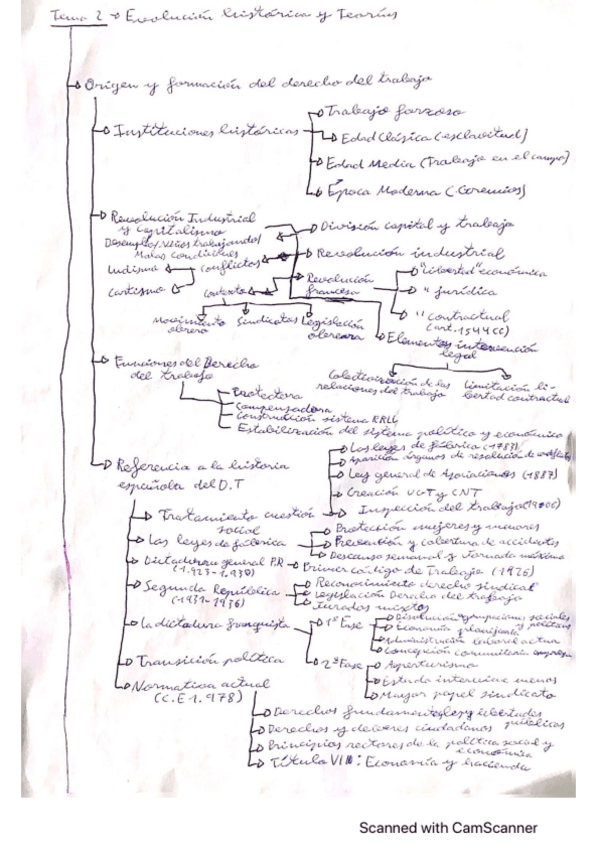 Tema 2 → Evolución histórica y Teorías
Origen y formación del derecho del trabajo
Instituciones históricas
Trabajo forzoso
Edad Clásica (esclavitud)
Edad Media (Trabajo en el campo)
Época Moderna (Gremios)
Revolución Industrial
y Capitalismo
Desempleo/niños trabajando/
Malas condiciones
Ludismo
Conflictos
Cartismo
Contexto
División capital y trabajo
Revolución industrial
Revolución
francesa
"libertad" económica
" jurídica
" contractual
(art. 1544 CC)
Movimiento
obrero
Sindicatos
Legislación
obrera
Elementos intervención
legal
Colectivización de las
relaciones del trabajo
Limitación li-
bertad contractual
Funciones del Derecho
del trabajo
Protectora
Compensadora
Construcción sistema RRLL
Estabilización del sistema político y económico
Referencia a la historia
española del D.T
Tratamiento cuestión
social
Las leyes de fábrica (1783)
Aparición órganos de resolución de conflictos
Ley general de Asociaciones (1887)
Creación UGT y CNT
Inspección del trabajo (1906)
Las leyes de fábrica
Protección mujeres y menores
Prevención y cobertura de accidentes
Descanso semanal y Jornada máxima
Dictadura general P.R
(1.923-1.930)
Primer código de Trabajo (1926)
Segunda República
(1931-1936)
Reconocimiento derecho sindical
Legislación Derecho del trabajo
Jurados mixtos
La dictadura franquista
1ª Fase
Disolución agrupaciones sociales
y políticas
Economía planificada
Administración laboral actua
Concepción comunitaria empresa
2ª Fase
Aperturismo
Estado interviene menos
Mayor papel sindicato
Transición política
Normativa actual
(C.E 1.978)
Derechos fundamentales y libertades
públicas
Derechos y deberes ciudadanos
Principios rectores de la política social y
económica
Título VII: Economía y hacienda
Scanned with CamScanner